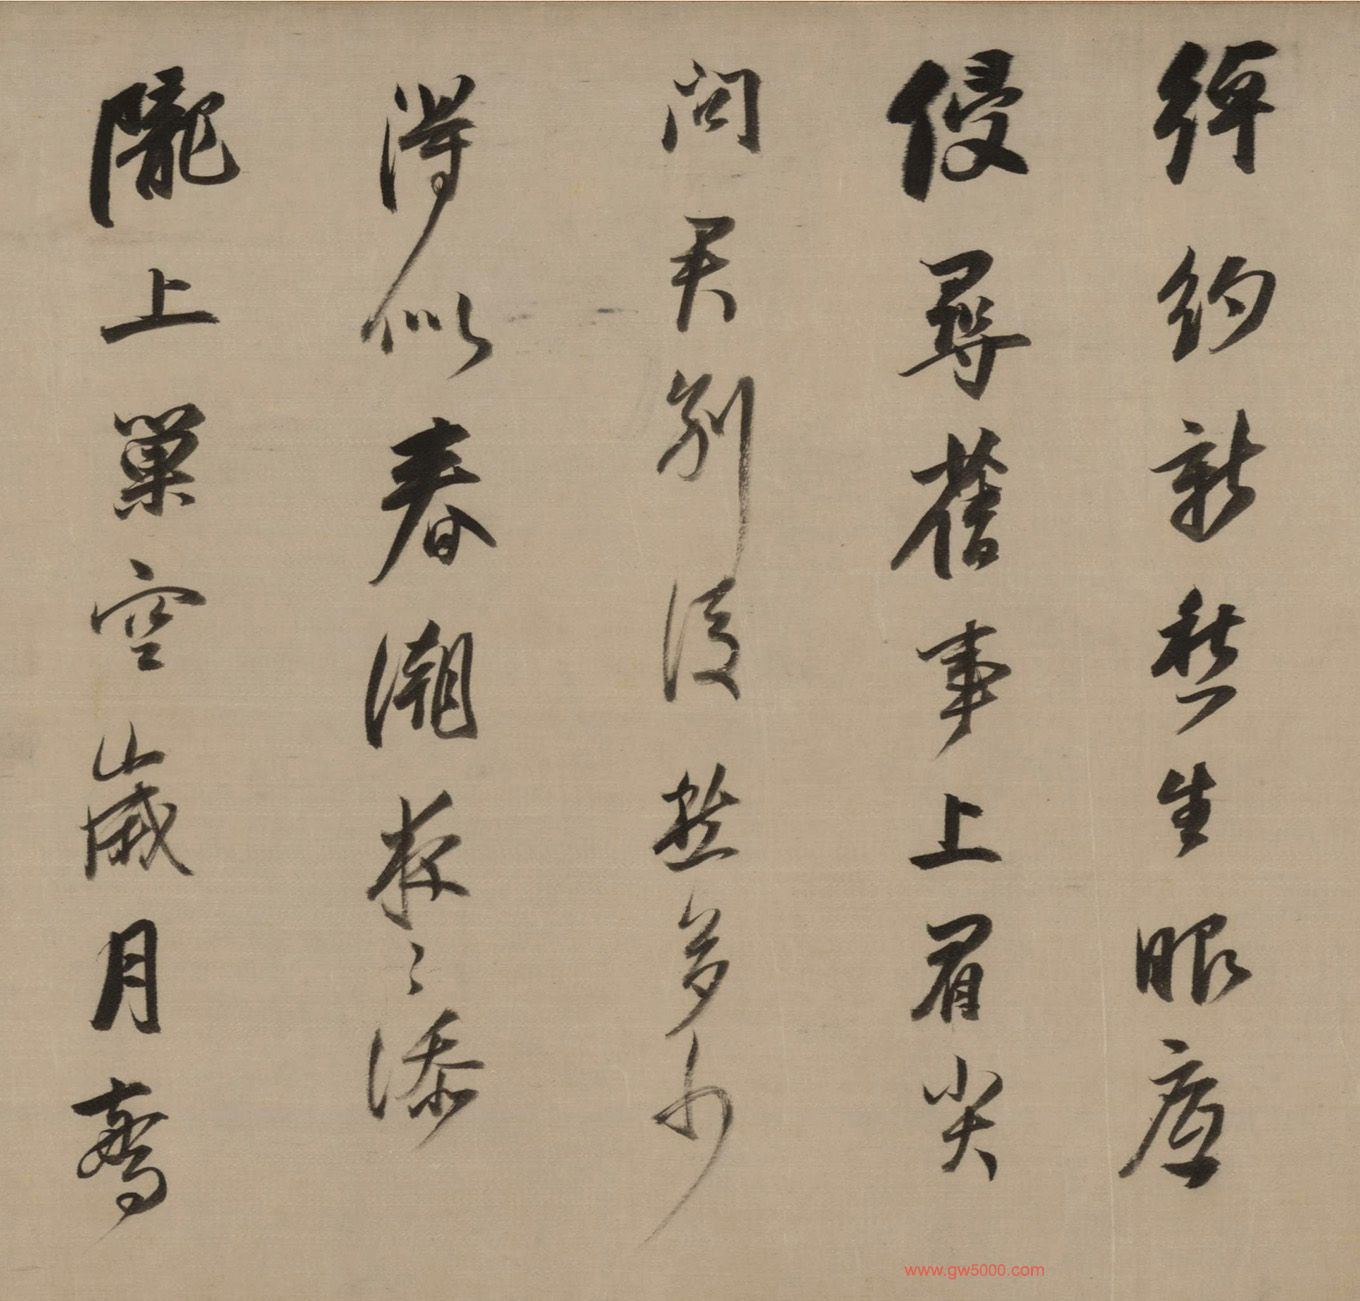 綽約新愁生眼底
侵尋舊事上眉尖
問君別後愁多少
得似春潮夜〻添
隴上巢空歲月驚
www.gw5000.com